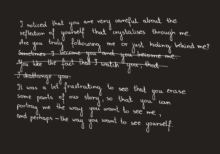 I noticed that you are very careful about the
reflection of yourself that crystalises through me.
Are you truly following me or just hiding behind me?
Sometimes I become you and you become me.
You like the fact that I watch you, that
I challenge you.
It was a bit frustrating to see that you erase
some parts of our story, so that you can
portray me the way you want to see me,
and perhaps - the way you want to see yourself.